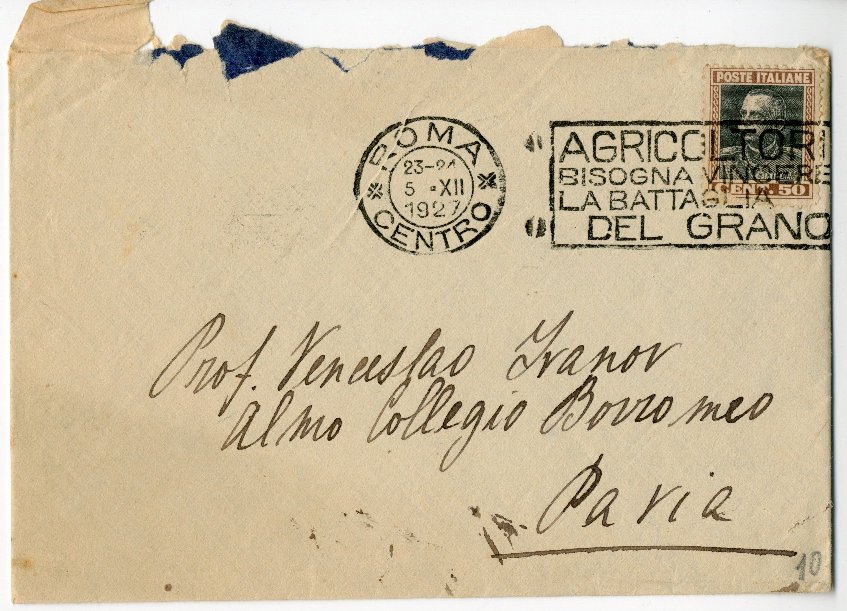 POSTE ITALIANE
ROMA
23-24
5 · XII
1927
CENTRO
AGRICOLTORI
BISOGNA VINCERE
LA BATTAGLIA
DEL GRANO
CENT. 50
Prof. Venceslao Ivanov
Almo Collegio Borromeo
Pavia
10